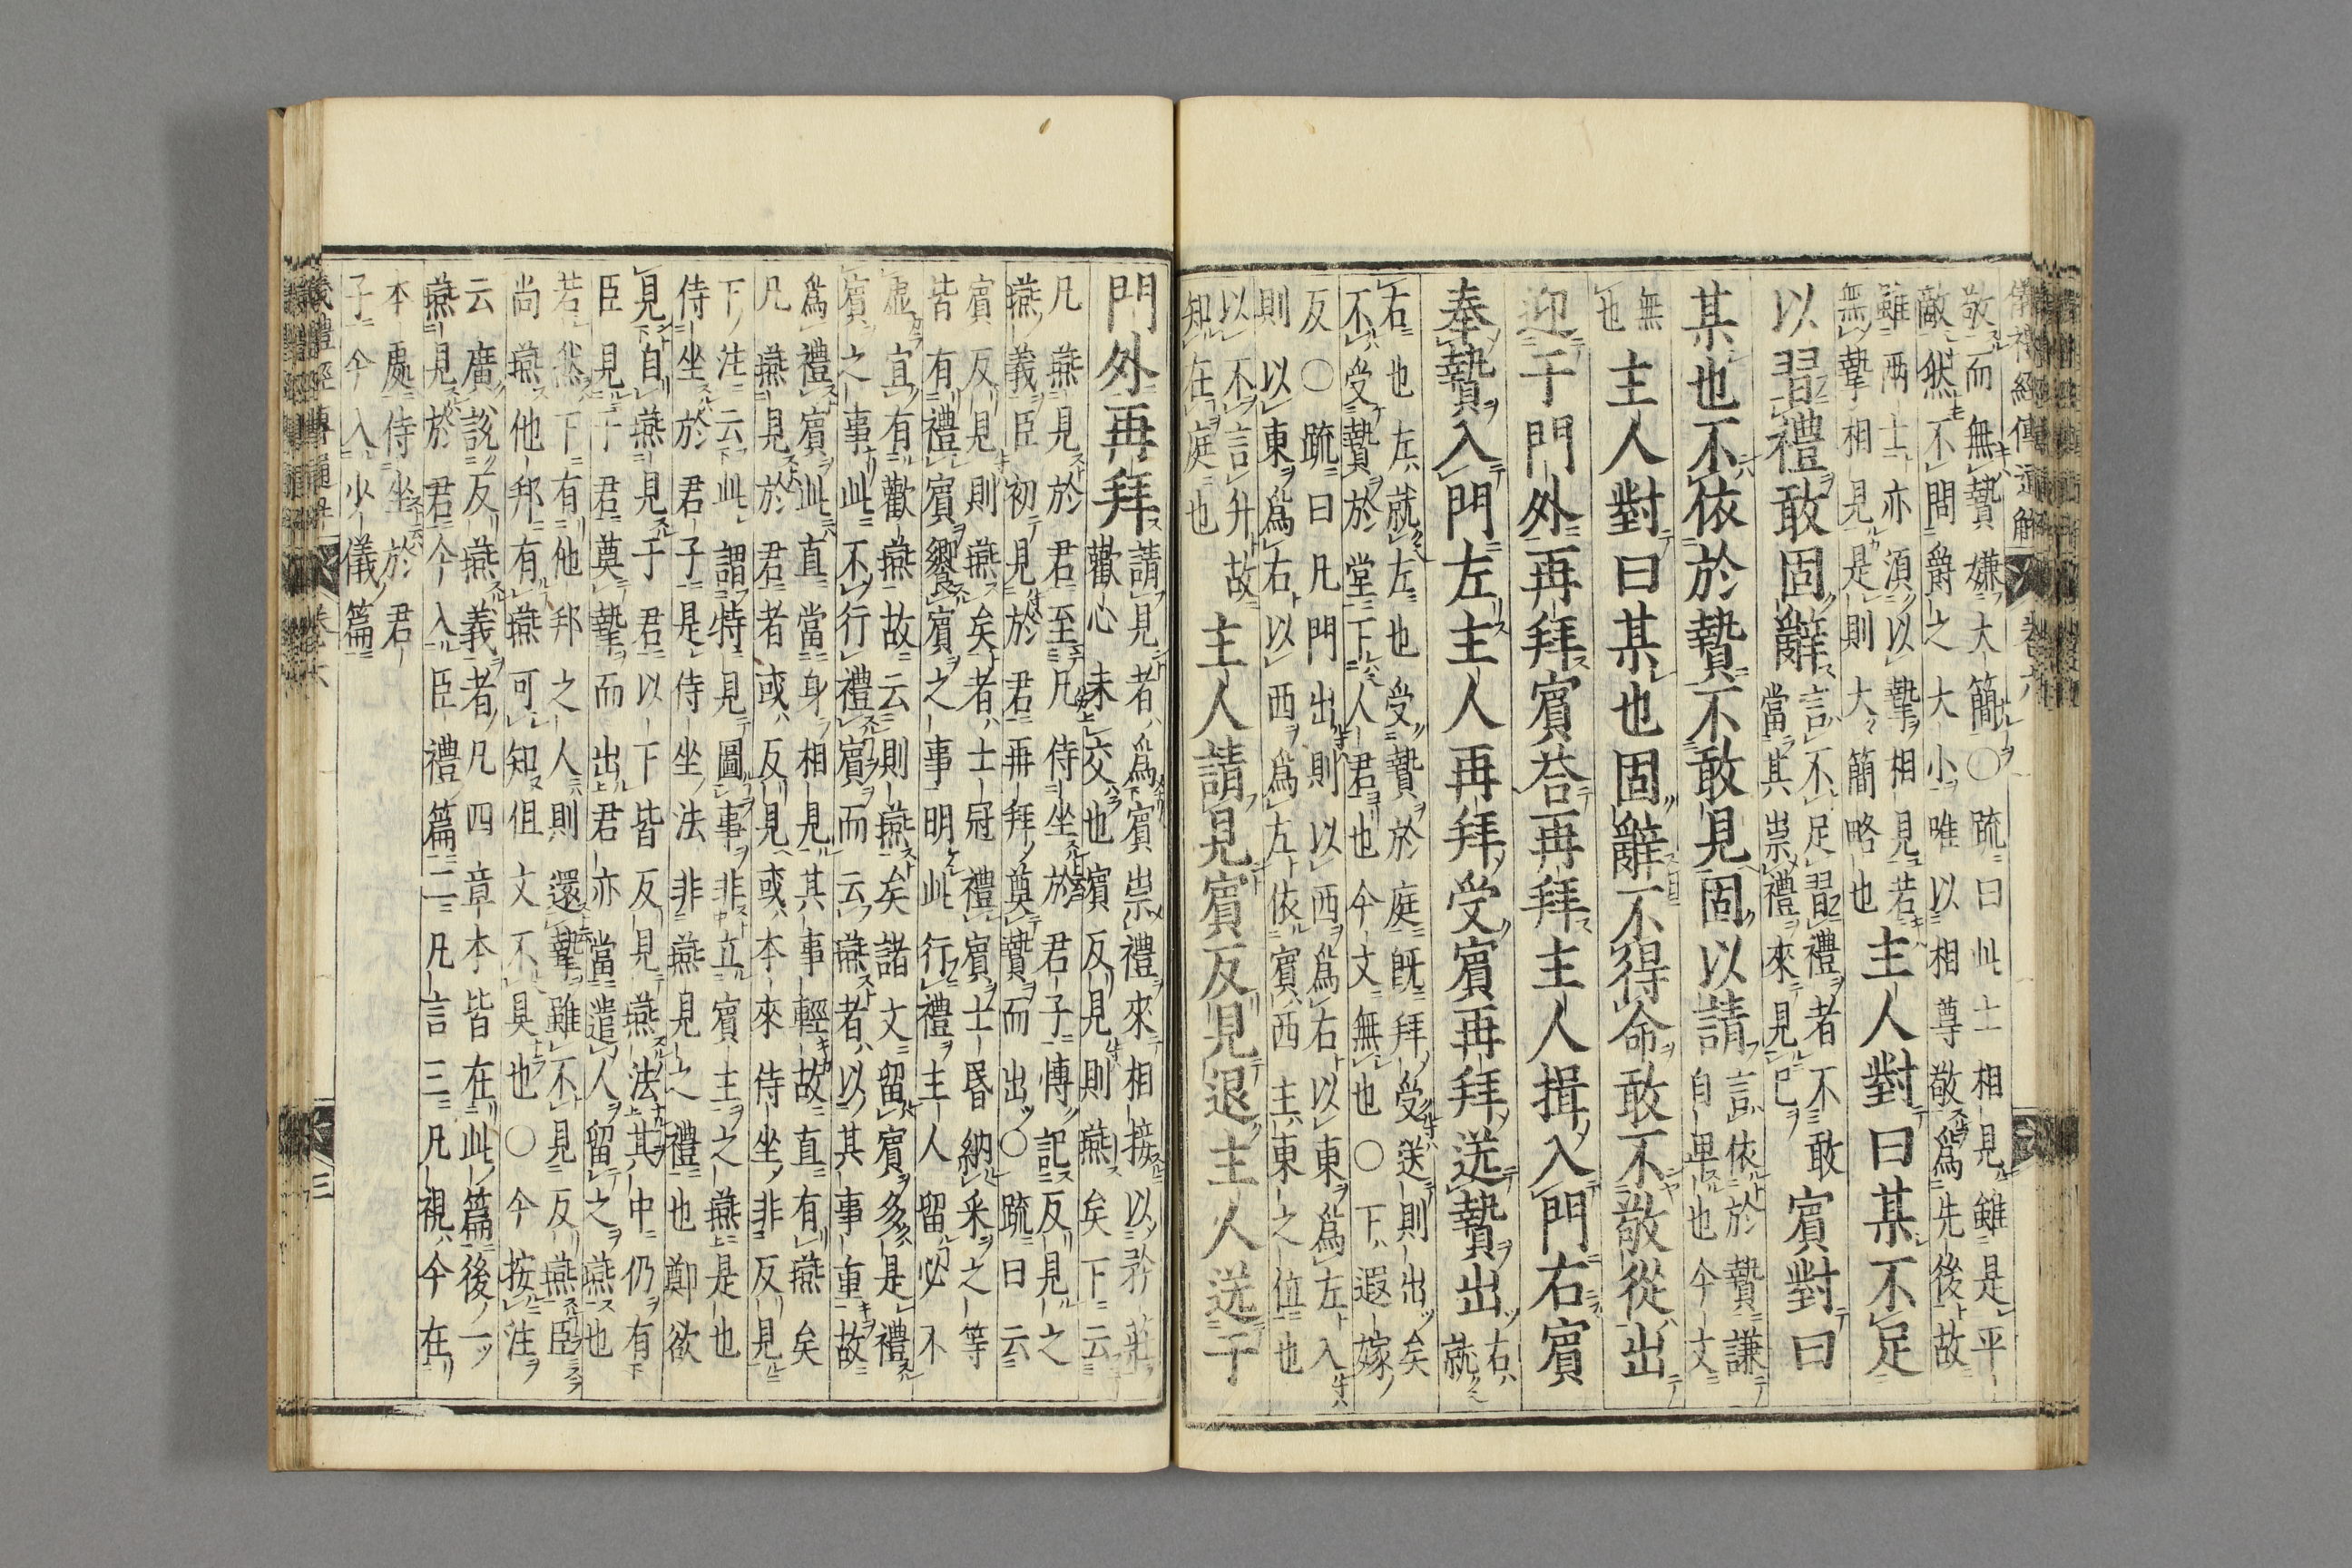 儀禮經傳通解 卷六
敬而無贄嫌大簡○疏曰此士相見雖是平
敵然不問爵之大小唯以相尊敬爲先後故
雖兩士亦湏以摯相見若
無摯相見是則大簡略也
主人對曰某不足
以習禮敢固辭
言不足習禮者不敢
當其崇禮來見已
賓對曰
某也不依於贄不敢見固以請
言依於贄謙
自卑也今文
無
也
主人對曰某也固辭不得命敢不敬從出
迎于門外再拜賓荅再拜主人揖入門右賓
奉贄入門左主人再拜受賓再拜送贄出
右
就
右也左就左也受贄於庭既拜受送則出矣
不受贄於堂下人君也今文無也○下遐嫁
反○疏曰凡門出則以西爲右以東爲左入
則以東爲右以西爲左依賓西主東之位也
以不言升故
知在庭也
主人請見賓反見退主人送于
門外再拜
請見者爲賓崇禮來相接以矜莊
歡心未交也賓反見則燕矣下云
凡燕見於君至凡侍坐於君子愽記反見之
燕義臣初見於君再拜奠贄而出○疏曰云
賓反見則燕矣者士冠禮賓士昏納采之等
皆有禮賓饗賓之事明此行禮主人留必不
虛宜有歡燕故云則燕矣諸文留賓多是禮
賓之事此不行禮賓而云燕者以其事重故
爲禮賓此直當身相見其事輕故直有燕矣
凡燕見於君者或反見或本來侍坐非反見
下注云此謂特見圖事非立賓主之燕是也
侍坐於君子是侍坐法非燕見之禮也鄭欲
見自燕見于君以下皆反見燕法其中仍有
臣見于君奠摯而出君亦當遣人留之燕也
若然下有他邦之人則還摯雖不見反燕臣
尚燕他邦有燕可知但文不具也○今按注
云廣說反燕義者凡四章本皆在此篇後一
燕見於君今入臣禮篇二凡言三凡視今在
本處侍坐於君
子今入少儀篇
儀禮經傳通解 卷六 三